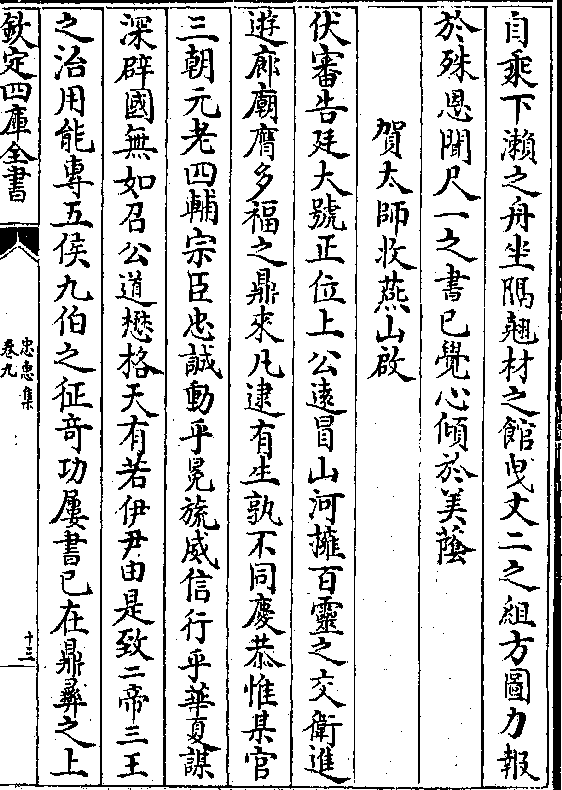 自乘下瀨之舟坐隅翹材之館曵丈二之組方圖力報
於殊恩聞尺一之書已覺心傾於美蔭
賀太師收燕山啟
伏審告廷大號正位上公遠冒山河擁百靈之交衛進
遊廊廟膺多福之鼎來凡逮有生孰不同慶恭惟某官
三朝元老四輔宗臣忠誠動乎冕旒威信行乎華夏謀
深辟國無如召公道懋格天有若伊尹由是致二帝三王
之治用能專五侯九伯之征竒功屢書已在鼎彝之上
欽定四庫全書
忠惠集
卷九
十三